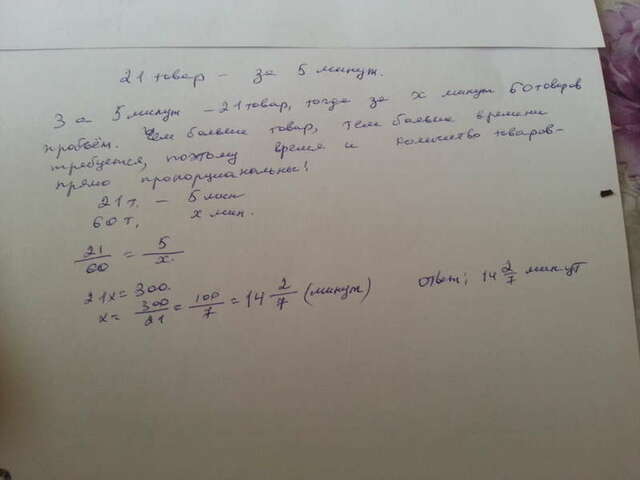 21 товар - за 5 минут.
За 5 минут - 21 товар, тогда за x минут 60 товаров
пробьём. Чем больше товар, тем больше времени
требуется, поэтому время и количество товаров-
прямо пропорциональны!
21 т. - 5 мин
60 т, x мин.
21/60 = 5/x.
21x = 300.
x = 300/21 = 100/7 = 14 2/7 (минут)
ответ; 14 2/7 минут